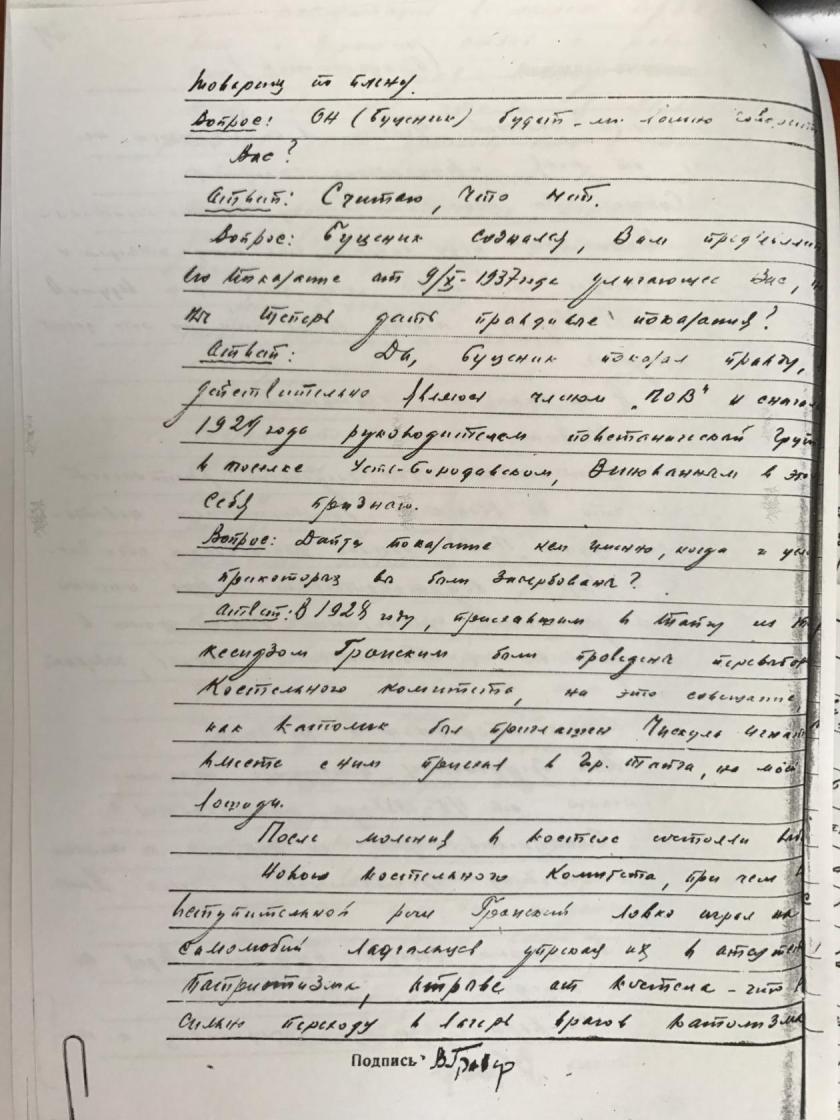 товарищ по плену.
Вопрос: Он (Буценик) будет-ли ложно говорить
Вас?
Ответ: Считаю, что нет.
Вопрос: Буценик сознался, Вам предъявляет
его показание от 9/X-1937 года уличающее Вас,
Вы теперь дать правдивые показания?
Ответ: Да, Буценик показал правду,
действительно являюсь членом „ПОВ“ и сначала
1929 года руководителем повстанческой груп
в поселке Усть-Бородавском, Виновным в это
себя признаю.
Вопрос: Дайте показание кем именно, когда и
при которых вы были завербованы?
Ответ: В 1928 году, приехавшим в Тайгу из
ксендзом Гронским были проведены перевыбор
костельного комитета, на это совещание,
как католик был приглашен Чискуль
вместе с ним приехал в гр. Тайга, на мой
лошади.
После моления в костеле состояли выб
Нового костельного комитета, при чем в
вступительной речи Гронский ловко играл на
самолюбий ладгальцев упрекая их в отсутст
патриотизма, отрыве от костела - что
сильн переходу в лагерь врагов католизма
Подпись